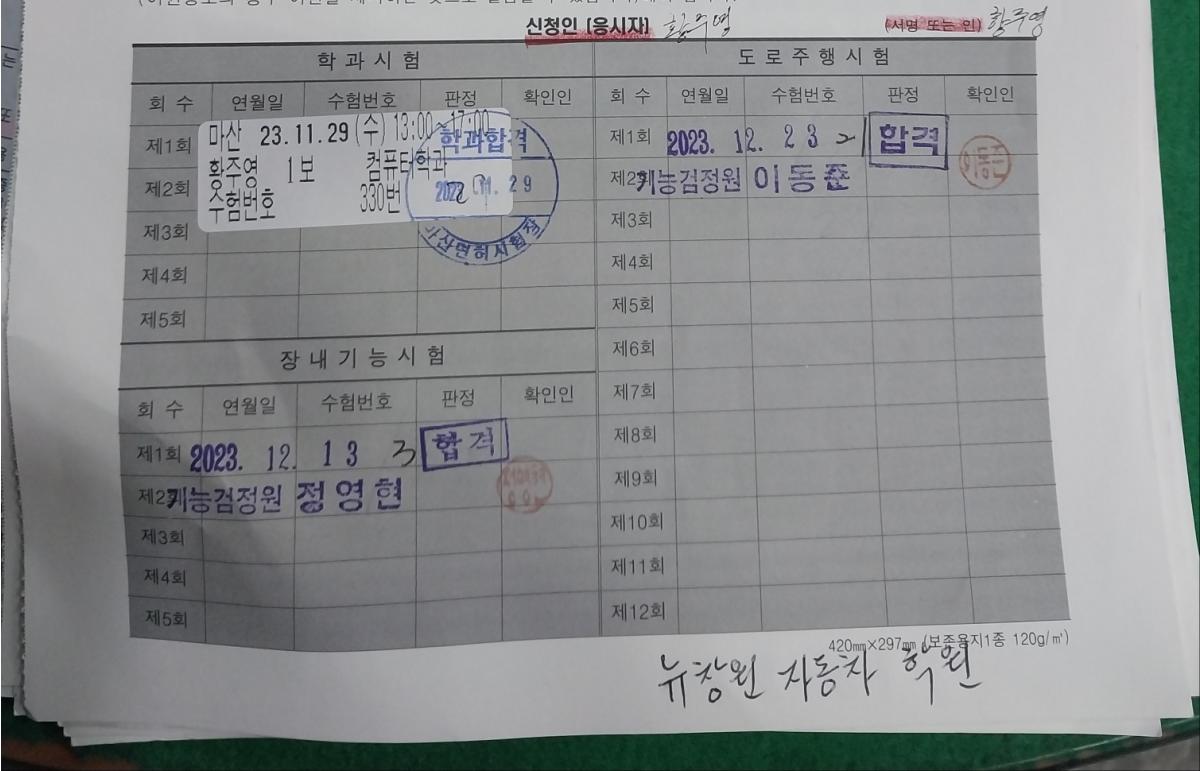 신청인 (응시자) 황주영 (서명 또는 인) 황주영
학 과 시 험
회 수 연월일 수험번호 판정 확인인
제1회
제2회
제3회
제4회
제5회
마산 23.11.29(수) 13:00~17:00
황주영 1보 컴퓨터학과
수험번호 330번
학과합격
11. 29
마산면허시험장
장 내 기 능 시 험
회 수 연월일 수험번호 판정 확인인
제1회 2023. 12. 1 3 3 합격
제2 기능검정원 정영현
제3회
제4회
제5회
도 로 주 행 시 험
회 수 연월일 수험번호 판정 확인인
제1회 2023. 12. 2 3 합격
제2 기능검정원 이동준
제3회
제4회
제5회
제6회
제7회
제8회
제9회
제10회
제11회
제12회
420㎜×297㎜ (보존용지1종 120g/㎡)
뉴창원 자동차 학원